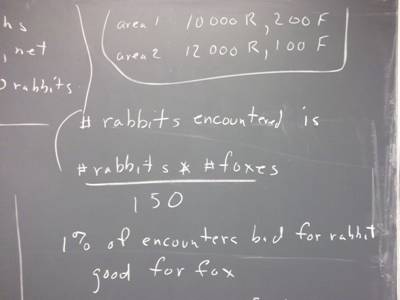 hs
, net
rabbits
area 1 10 000 R, 200 F
area 2 12 000 R, 100 F
# rabbits encountered is
# rabbits * # foxes
150
1% of encounters bad for rabbit
good for fox